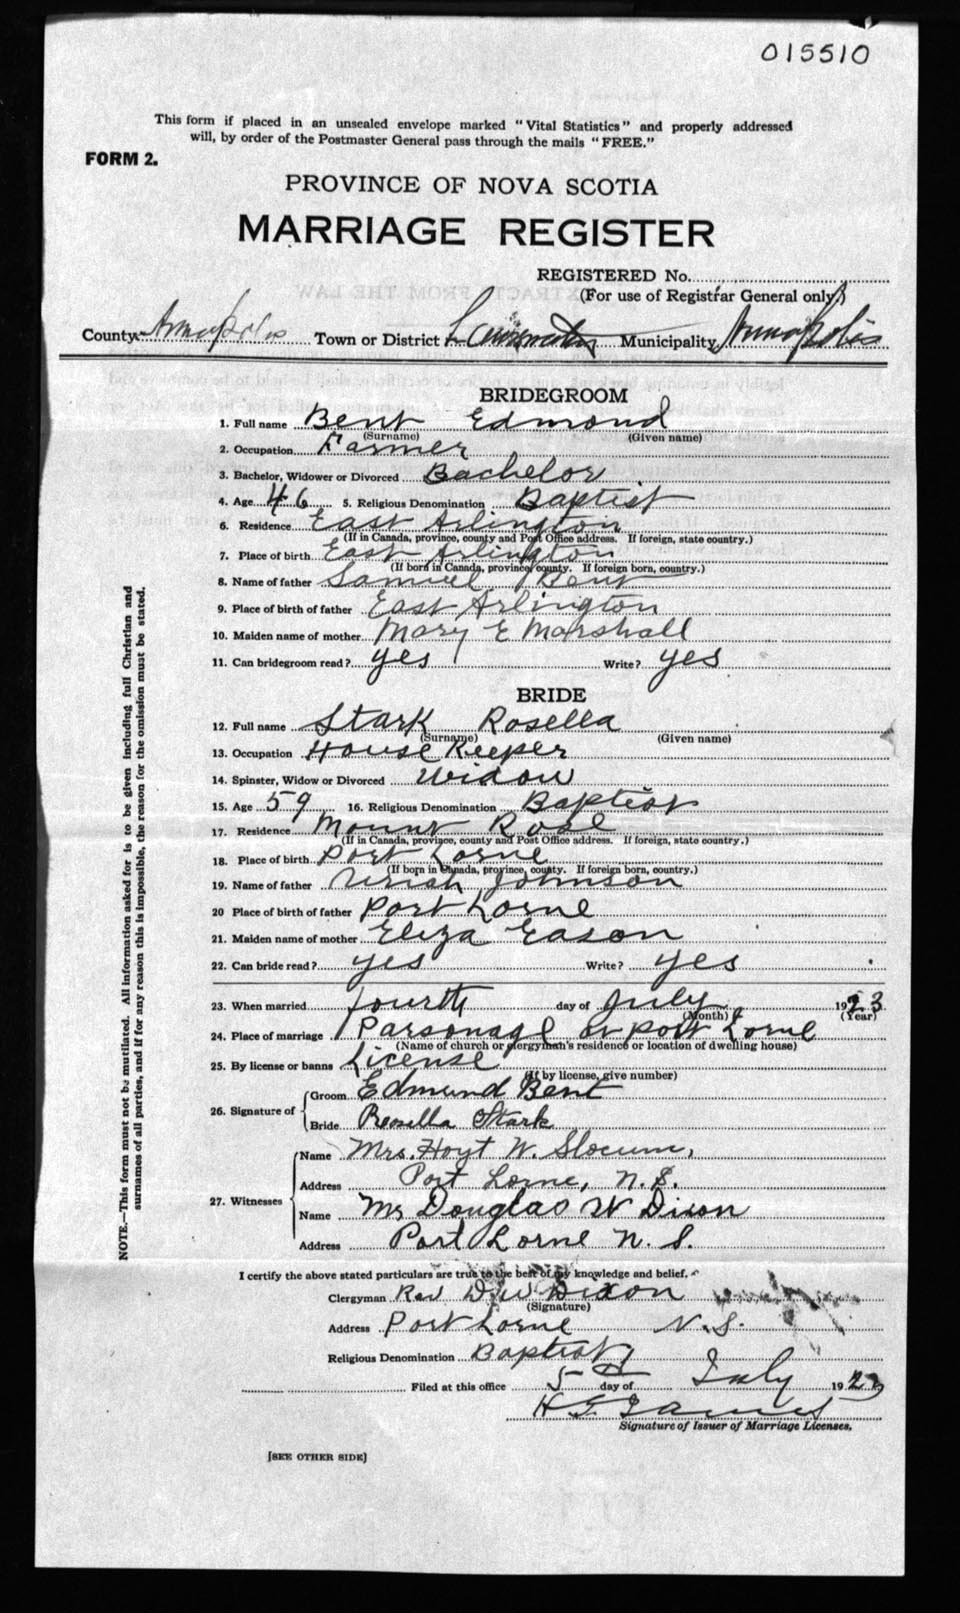 015510
This form if placed in an unsealed envelope marked "Vital Statistics" and properly addressed
will, by order of the Postmaster General pass through the mails "FREE."
FORM 2.
PROVINCE OF NOVA SCOTIA
MARRIAGE REGISTER
REGISTERED No.
(For use of Registrar General only)
County Annapolis Town or District Lawrencetown Municipality Annapolis
BRIDEGROOM
1. Full name Bent Edmond
(Surname) (Given name)
2. Occupation Farmer
3. Bachelor, Widower or Divorced Bachelor
4. Age 46 5. Religious Denomination Baptist
6. Residence East Arlington
(If in Canada, province, county and Post Office address. If foreign, state country.)
7. Place of birth East Arlington
(If born in Canada, province, county. If foreign born, country.)
8. Name of father Samuel Bent
9. Place of birth of father East Arlington
10. Maiden name of mother Mary E Marshall
11. Can bridegroom read? yes Write? yes
BRIDE
12. Full name Stark Rosella
(Surname) (Given name)
13. Occupation House Keeper
14. Spinster, Widow or Divorced Widow
15. Age 59 16. Religious Denomination Baptist
17. Residence Mount Rose
(If in Canada, province, county and Post Office address. If foreign, state country.)
18. Place of birth Port Lorne
(If born in Canada, province, county. If foreign born, country.)
19. Name of father Uriah Johnson
20 Place of birth of father Port Lorne
21. Maiden name of mother Eliza Eason
22. Can bride read? yes Write? yes
23. When married fourth day of July 1923
(Month) (Year)
24. Place of marriage Parsonage at Port Lorne
(Name of church or clergyman's residence or location of dwelling house)
25. By license or banns License
(If by license, give number)
26. Signature of Groom Edmund Bent
Bride Rosella Stark
27. Witnesses Name Mrs. Hoyt W. Slocum,
Address Port Lorne, N.S.
Name Mrs Douglas W Dixon
Address Port Lorne N. S.
I certify the above stated particulars are true to the best of my knowledge and belief.
Clergyman Rev D W Dixon
(Signature)
Address Port Lorne N.S.
Religious Denomination Baptist
Filed at this office 5th day of July 1923
H G
Signature of Issuer of Marriage Licenses.
[SEE OTHER SIDE]
NOTE.—This form must not be mutilated. All information asked for is to be given including full Christian and
surnames of all parties, and if for any reason this is impossible, the reason for the omission must be stated.